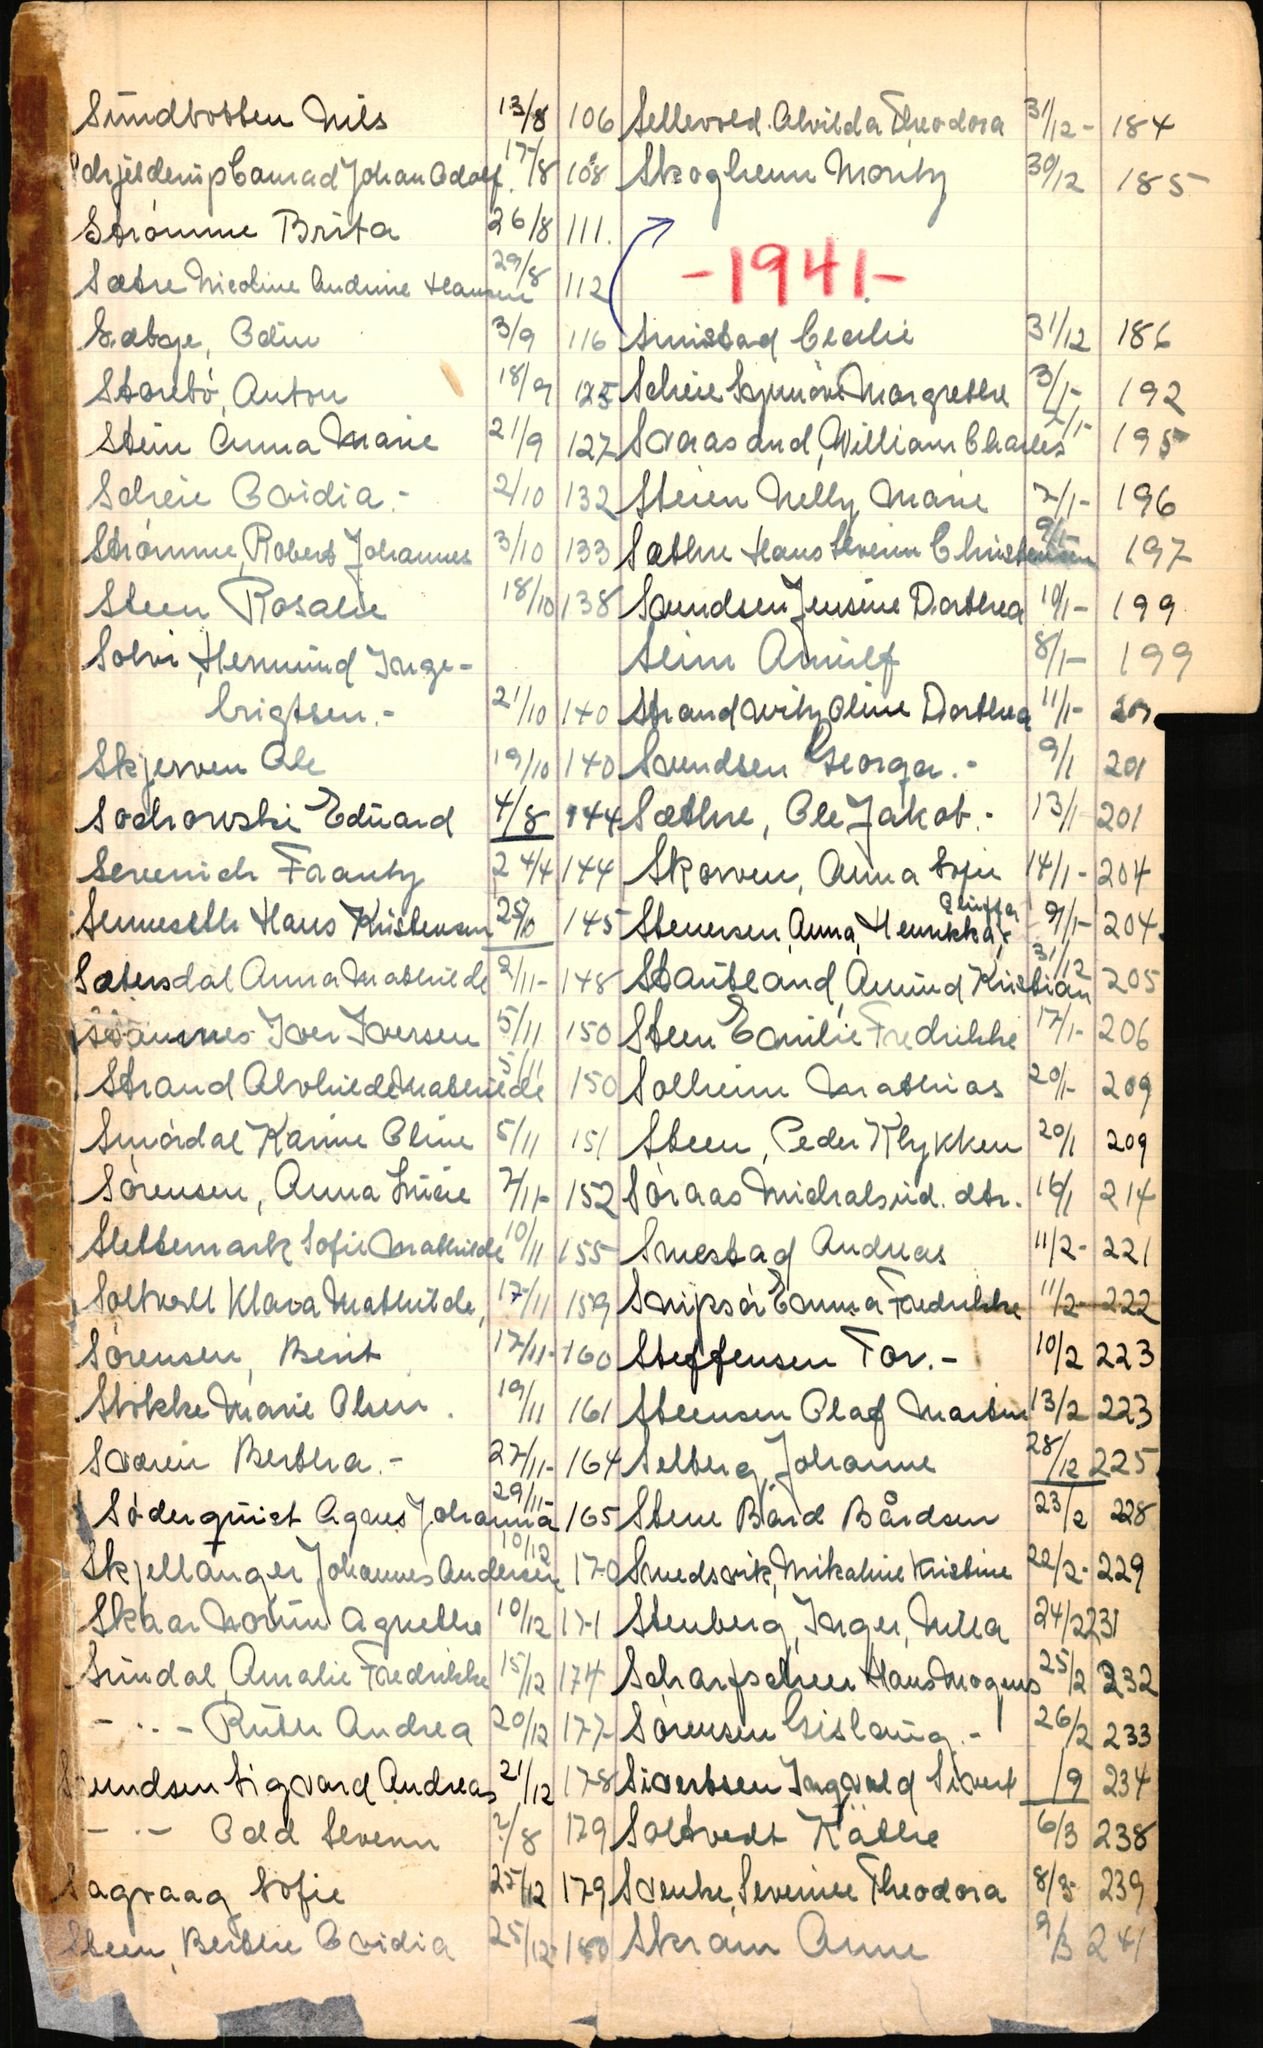 Sundbotten Nils 13/8 106
Schjelderup Conrad Johan Adolf. 17/8 108
Strömme Brita 26/8 111.
Sætre Nicoline Andrine Hansen 29/8 112
Odin 3/9 116
Storebö, Anton 18/9 125
Stein Anna Marie 21/9 127
Scheie Ovidia.- 2/10 132
Strömme, Robert Johannes 3/10 133
Steen Rosalie 18/10 138
Solvi, Hermund Inge-
brigtsen.- 21/10 140
Skjerven Ole 19/10 140
Sochowski Eduard 4/8 144
Severich Frantz 24/4 144
Hans Kristensen 25/10 145
Sætersdal Anna Mathilde 2/11- 148
Iver Iversen 5/11 150
Strand Alvhilde Mathilde 5/11 150
Smördal Karine Oline 5/11 151
Sörensen, Anna Lucie 7/11- 152
Slettemark Sofie Mathilde 10/11 155
Soltvedt Klara Mathilde, 17/11 159
Sörensen, Berit 17/11- 160
Stokke Marie Olsen. 19/11 161
Svaren Berthea.- 27/11- 164
Söderquist Agnes Johanna 29/11- 165
Skjellanger Johannes Andersen 10/12 170
Skaar Agnethe 10/12 171
Sundal, Amalie Fredrikke 15/12 174
- .. - Ruth Andrea 20/12 177
Svendsen Sigvard Andreas 21/12 178
- .. - Odd Severin 7/8 179
Sagvaag Sofie 25/12 179
Steen, Berthe Ovidia 25/12- 180
Sellevold. Alvilda Theodora 31/12- 184
Skogheim Moritz 30/12 185
-1941-
Smistad Cecilie 31/12 186
Scheie Synnöve Margrethe 3/1- 192
Svaasand, William Charles 7/1- 195
Steien Nelly Marie 7/1- 196
Sæthre Hans Severin Christensen 9/1 197
Svendsen Jensine Dorthea 10/1- 199
Seim Arnulf 8/1- 199
Strandvitz Oline Dorthea 11/1- 201
Svendsen Georga.- 9/1 201
Sæthre, Ole Jakob.- 13/1 201
Skorven, Anna Sofie 14/1- 204
Stenersen, Anna, Henrikka, 9/1- 204
Stautland, Amund Kristian 31/12 205
Steen Emilie Fredrikke 17/1- 206
Solheim Mathias 20/1- 209
Steen, Peder Klykken 20/1 209
Söraas dtr. 16/1 214
Smestad Andreas 11/2- 221
Snipsör Emma Fredrikke 11/2- 222
Steffensen Tor.- 10/2 223
Steensen Olaf Martin 13/2 223
Selberg, Johanne 28/12 225
Stene Bård Bårdsen 23/2 228
Smedsvik, Mikaline Kristine 22/2- 229
Stenberg, Inger, Milla 24/2 231
Scharfscheer Hans Mogens 25/2 232
Sörensen Gislaug.- 26/2 233
Sivertsen Ingvald Sivert /9 234
Soltvedt Käthe 6/3 238
Svenke, Severine Theodora 8/3- 239
Skram Anne 9/3 241